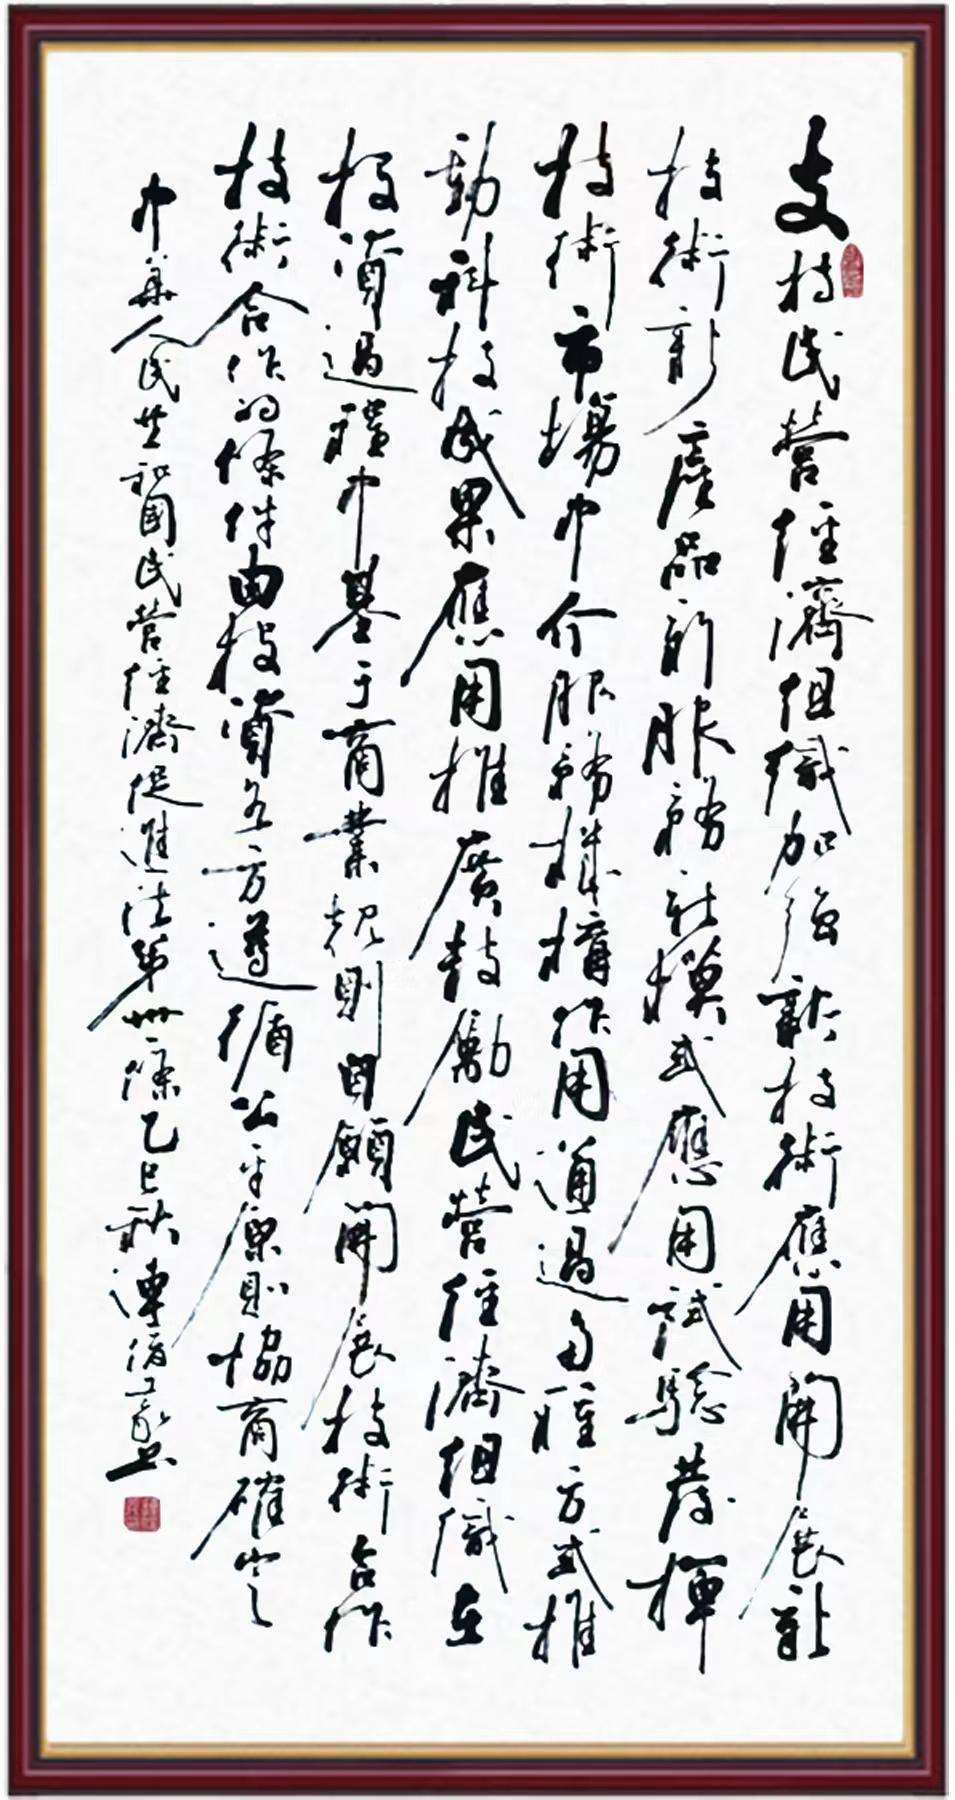 支持民營經濟組織加強新技術應用開展新
技術新產品新服務新模式應用試驗發揮
技術市場中介服務機構作用通過多種方式推
動科技成果應用推廣鼓勵民營經濟組織在
投資過程中基于商業規則自願開展技術合作
技術合作的條件由投資各方遵循公平原則協商確定
中華人民共和國民營經濟促進法第卅一條乙巳秋